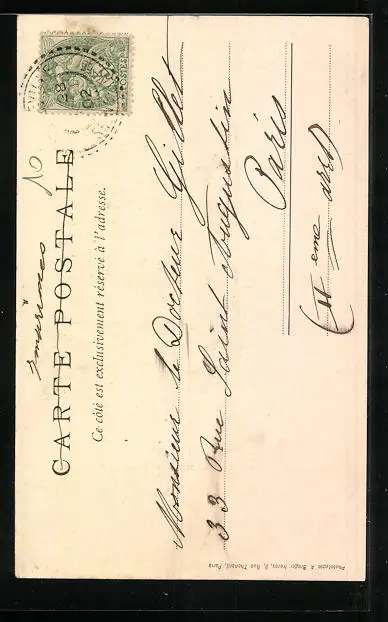 imprimés
CARTE POSTALE
Ce côté est exclusivement réservé à l'adresse.
10
Monsieur le Docteur Gillet
33 Rue Saint Augustin
Paris
(II eme arrdt)
POSTES
28
02
Phototypie A. Breger frères, 9, Rue Thénard, Paris